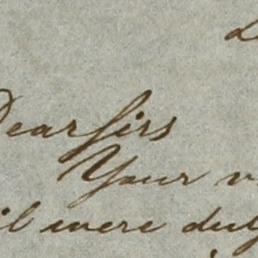 Dear Sirs
Your
were duly